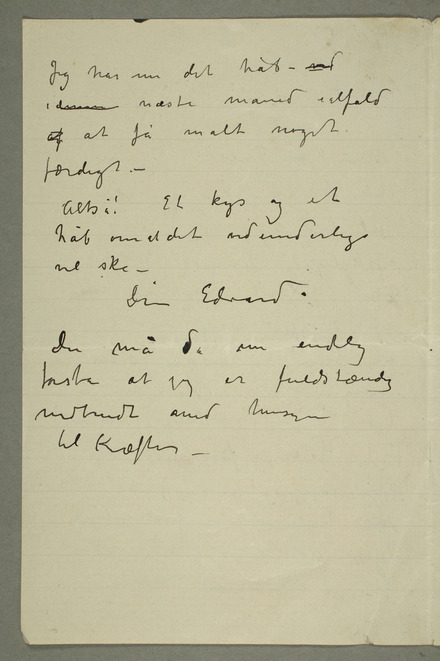 Jeg har nu det håb –
næste maaned ialfald
at få malt noget
færdigt. –
Altså! Et kys og et
håb om at det vidunderlige
vil ske –
Din Edvard.
Du må da nu endelig
forstå at jeg er fuldstændig
nedbrudt med hensyn
til Kræfter –